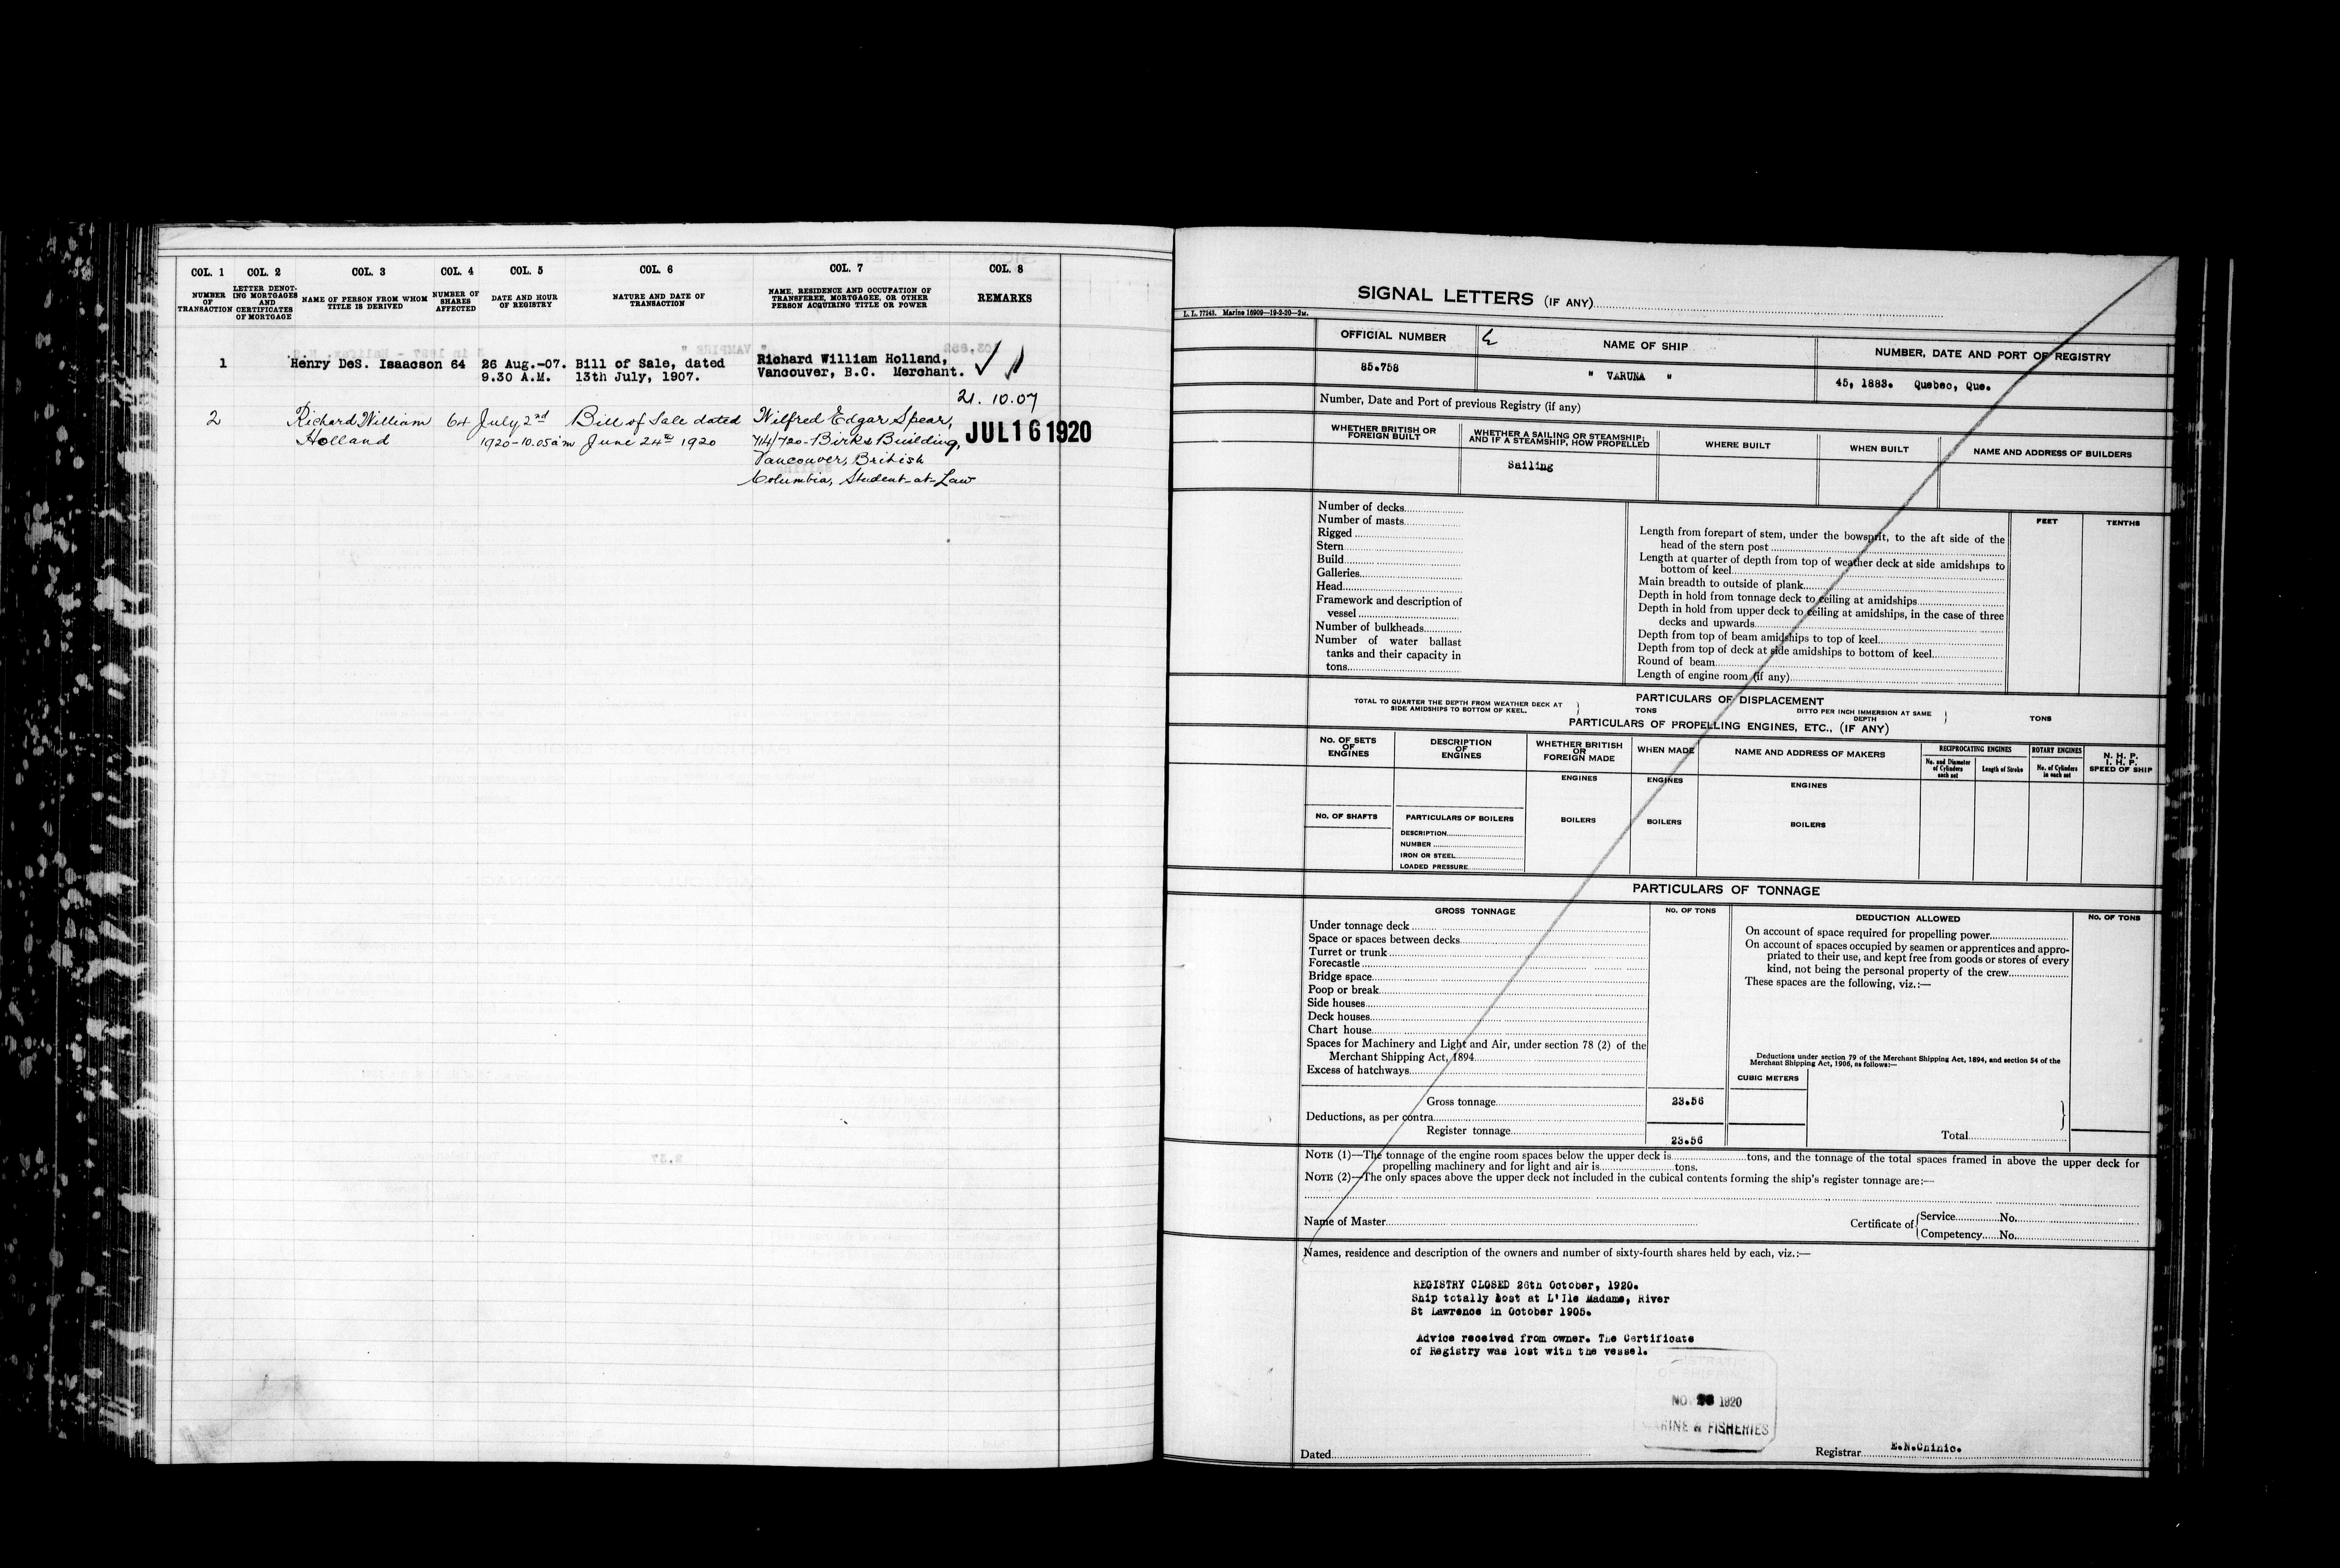 COL. 1 COL. 2 COL. 3 COL. 4 COL. 5 COL. 6 COL. 7 COL. 8
NUMBER OF TRANSACTION
LETTER DENOT-ING MORTGAGES AND CERTIFICATES OF MORTGAGE
NAME OF PERSON FROM WHOM TITLE IS DERIVED
NUMBER OF SHARES AFFECTED
DATE AND HOUR OF REGISTRY
NATURE AND DATE OF TRANSACTION
NAME, RESIDENCE AND OCCUPATION OF TRANSFEREE, MORTGAGEE, OR OTHER PERSON ACQUIRING TITLE OR POWER
REMARKS
1 Henry DeS. Isaacson 64 26 Aug.-07. Bill of Sale, dated Richard William Holland,
9.30 A.M. 13th July, 1907. Vancouver, B.C. Merchant.
21.10.07
2 Richard William 64 July 2nd Bill of Sale dated Wilfred Edgar Spear,
Holland 1920-10.05am June 24th 1920 714/720-Birks Building, JUL 16 1920
Vancouver, British
Columbia, Student-at-Law
SIGNAL LETTERS (IF ANY)
L. L. 77243. Marine 16909—19-2-20—2M.
OFFICIAL NUMBER
NAME OF SHIP
NUMBER, DATE AND PORT OF REGISTRY
85.758
" VARUNA "
45, 1883. Quebec, Que.
Number, Date and Port of previous Registry (if any)
WHETHER BRITISH OR FOREIGN BUILT
WHETHER A SAILING OR STEAMSHIP; AND IF A STEAMSHIP, HOW PROPELLED
WHERE BUILT
WHEN BUILT
NAME AND ADDRESS OF BUILDERS
Sailing
Number of decks
Number of masts
Rigged
Stern
Build
Galleries
Head
Framework and description of
vessel
Number of bulkheads
Number of water ballast
tanks and their capacity in
tons
FEET TENTHS
Length from forepart of stem, under the bowsprit, to the aft side of the
head of the stern post
Length at quarter of depth from top of weather deck at side amidships to
bottom of keel
Main breadth to outside of plank
Depth in hold from tonnage deck to ceiling at amidships
Depth in hold from upper deck to ceiling at amidships, in the case of three
decks and upwards
Depth from top of beam amidships to top of keel
Depth from top of deck at side amidships to bottom of keel
Round of beam
Length of engine room (if any)
PARTICULARS OF DISPLACEMENT
TOTAL TO QUARTER THE DEPTH FROM WEATHER DECK AT SIDE AMIDSHIPS TO BOTTOM OF KEEL. } TONS
DITTO PER INCH IMMERSION AT SAME DEPTH } TONS
PARTICULARS OF PROPELLING ENGINES, ETC., (IF ANY)
NO. OF SETS OF ENGINES
DESCRIPTION OF ENGINES
WHETHER BRITISH OR FOREIGN MADE
WHEN MADE
NAME AND ADDRESS OF MAKERS
RECIPROCATING ENGINES
No. and Diameter of Cylinders each set
Length of Stroke
ROTARY ENGINES
No. of Cylinders in each set
N. H. P.
I. H. P.
SPEED OF SHIP
ENGINES ENGINES ENGINES
NO. OF SHAFTS
PARTICULARS OF BOILERS
BOILERS BOILERS BOILERS
DESCRIPTION
NUMBER
IRON OR STEEL
LOADED PRESSURE
PARTICULARS OF TONNAGE
GROSS TONNAGE NO. OF TONS DEDUCTION ALLOWED NO. OF TONS
Under tonnage deck
Space or spaces between decks
Turret or trunk
Forecastle
Bridge space
Poop or break
Side houses
Deck houses
Chart house
Spaces for Machinery and Light and Air, under section 78 (2) of the
Merchant Shipping Act, 1894
Excess of hatchways
Gross tonnage 23.56
Deductions, as per contra
Register tonnage 23.56
On account of space required for propelling power
On account of spaces occupied by seamen or apprentices and appro-
priated to their use, and kept free from goods or stores of every
kind, not being the personal property of the crew
These spaces are the following, viz.:—
Deductions under section 79 of the Merchant Shipping Act, 1894, and section 54 of the
Merchant Shipping Act, 1906, as follows:—
CUBIC METERS
Total
NOTE (1)—The tonnage of the engine room spaces below the upper deck is tons, and the tonnage of the total spaces framed in above the upper deck for
propelling machinery and for light and air is tons.
NOTE (2)—The only spaces above the upper deck not included in the cubical contents forming the ship's register tonnage are:—
Name of Master
Certificate of { Service No.
Competency No.
Names, residence and description of the owners and number of sixty-fourth shares held by each, viz.:—
REGISTRY CLOSED 26th October, 1920.
Ship totally lost at L'Ile Madame, River
St Lawrence in October 1905.
Advice received from owner. The Certificate
of Registry was lost with the vessel.
OF SHIPPING
1920
MARINE & FISHERIES
Dated
Registrar E.N.Chinic.